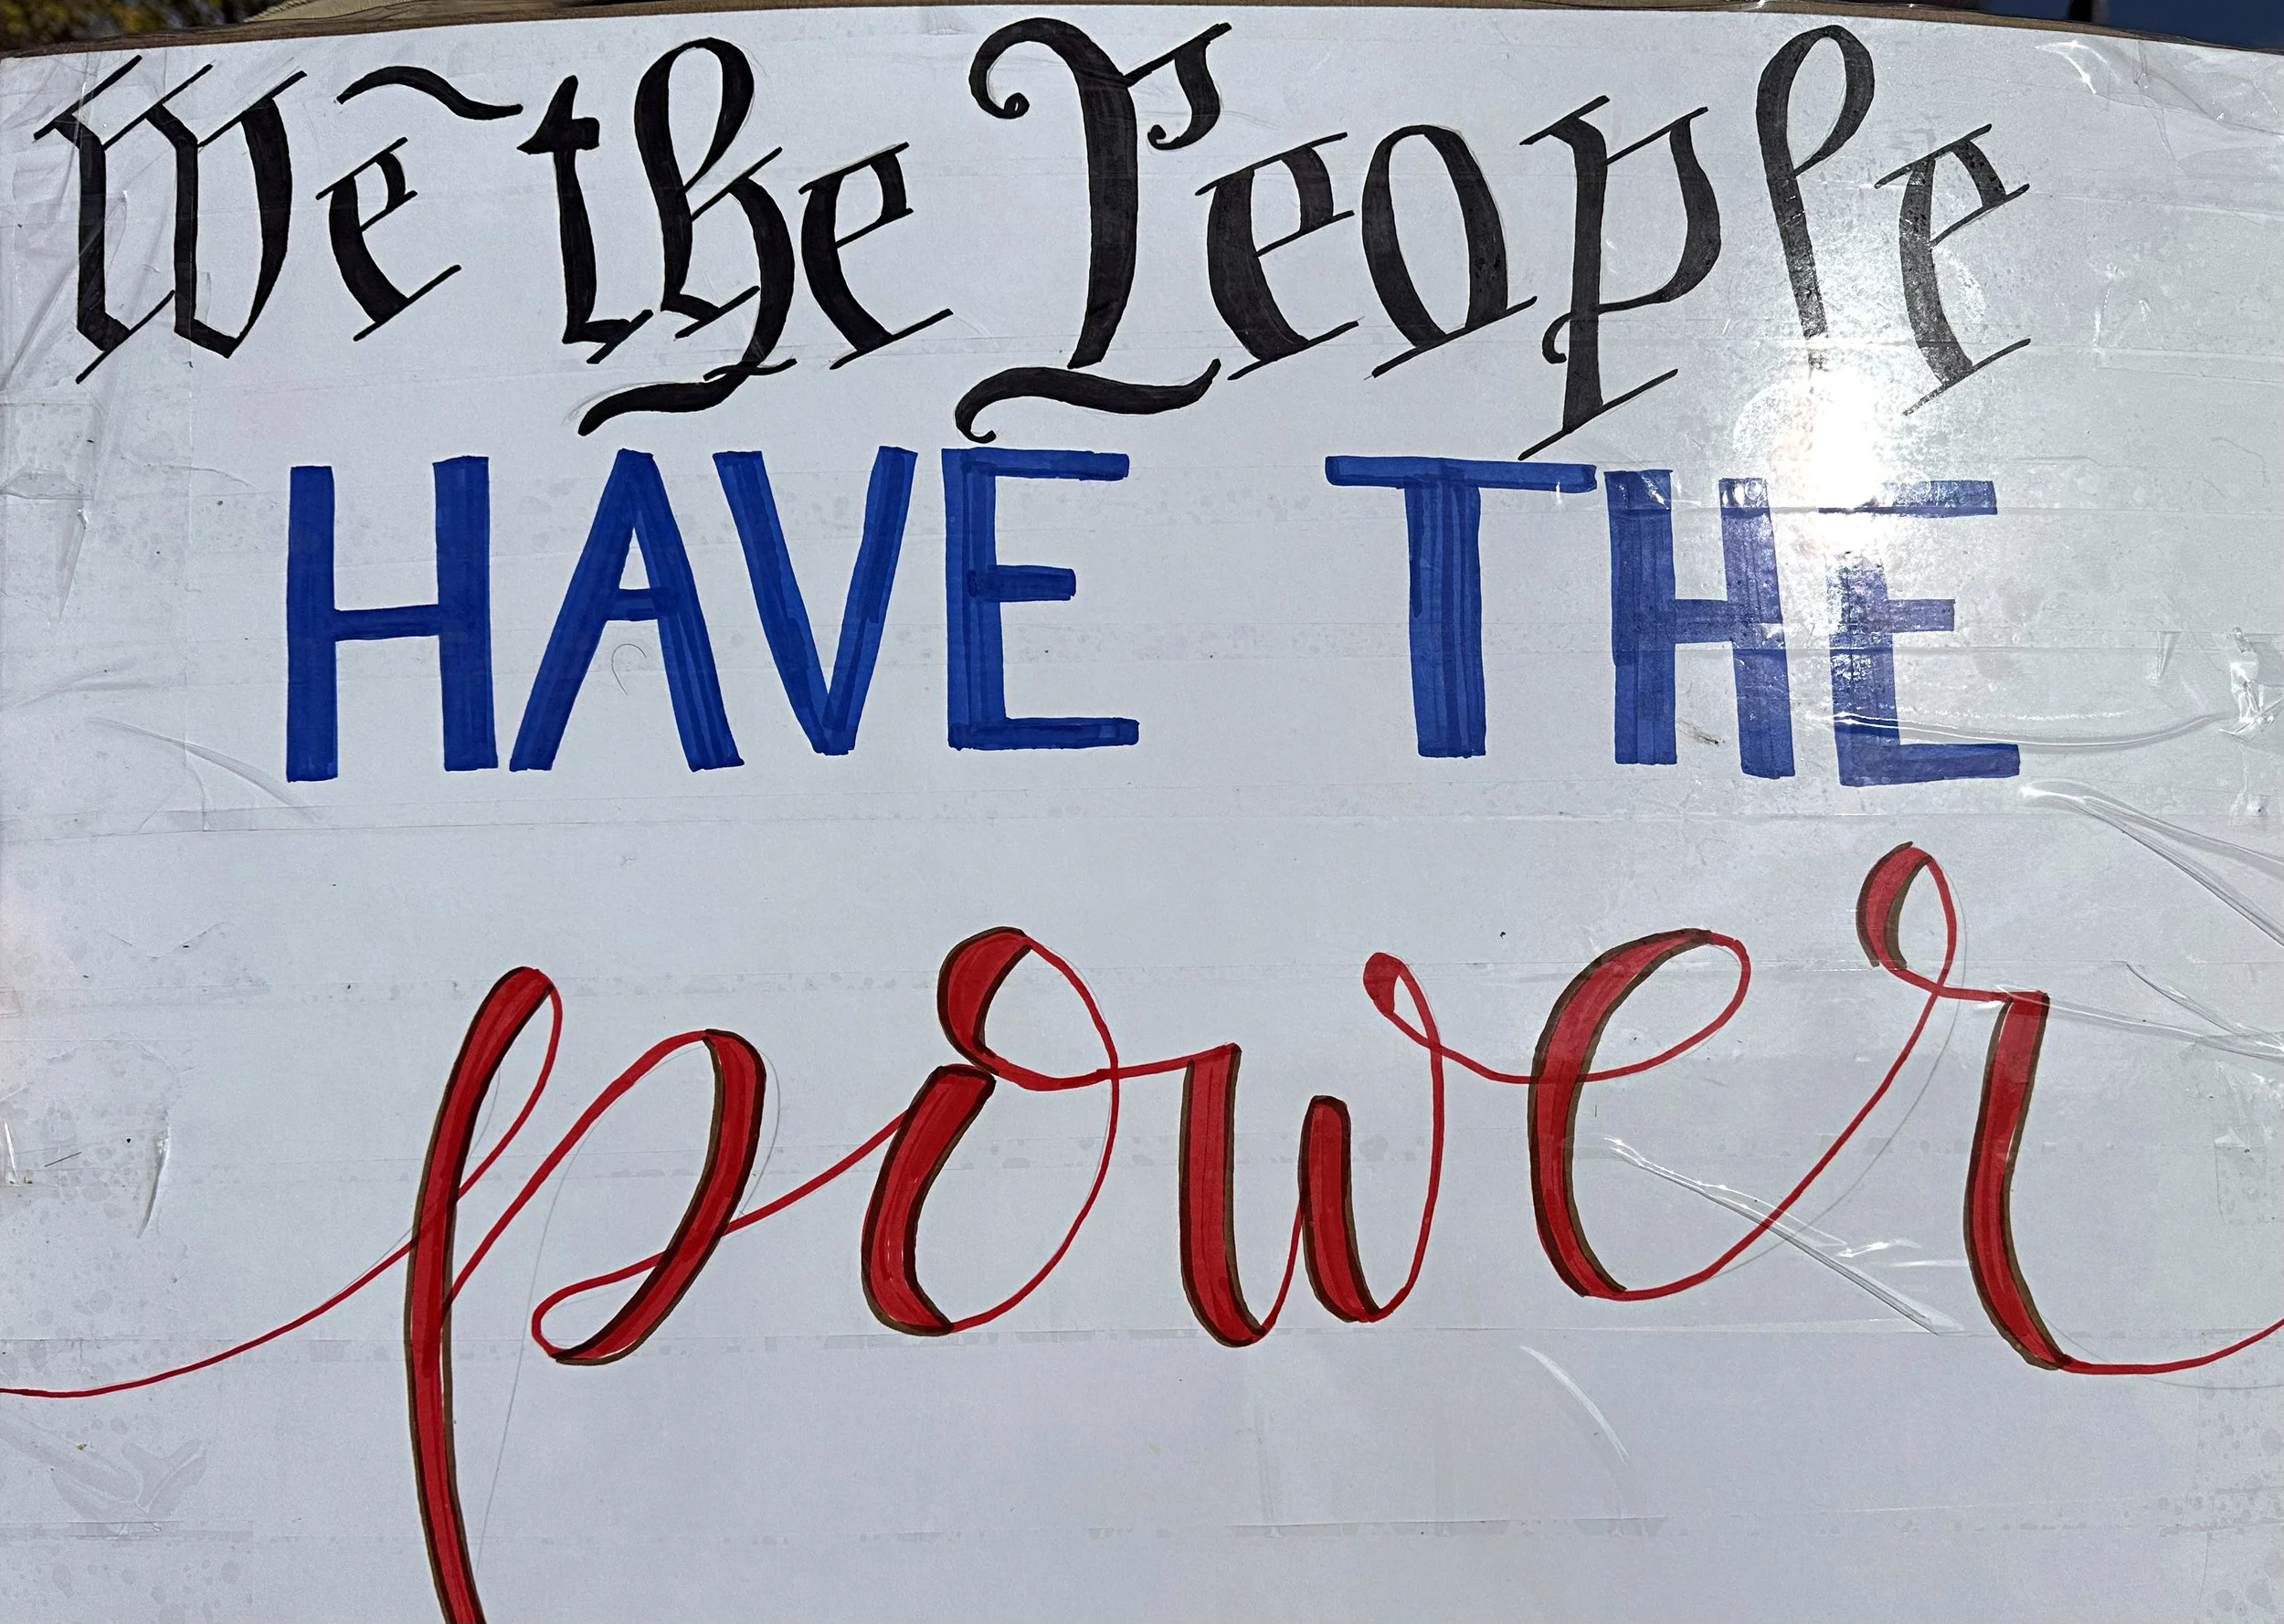 We the People
HAVE THE
power